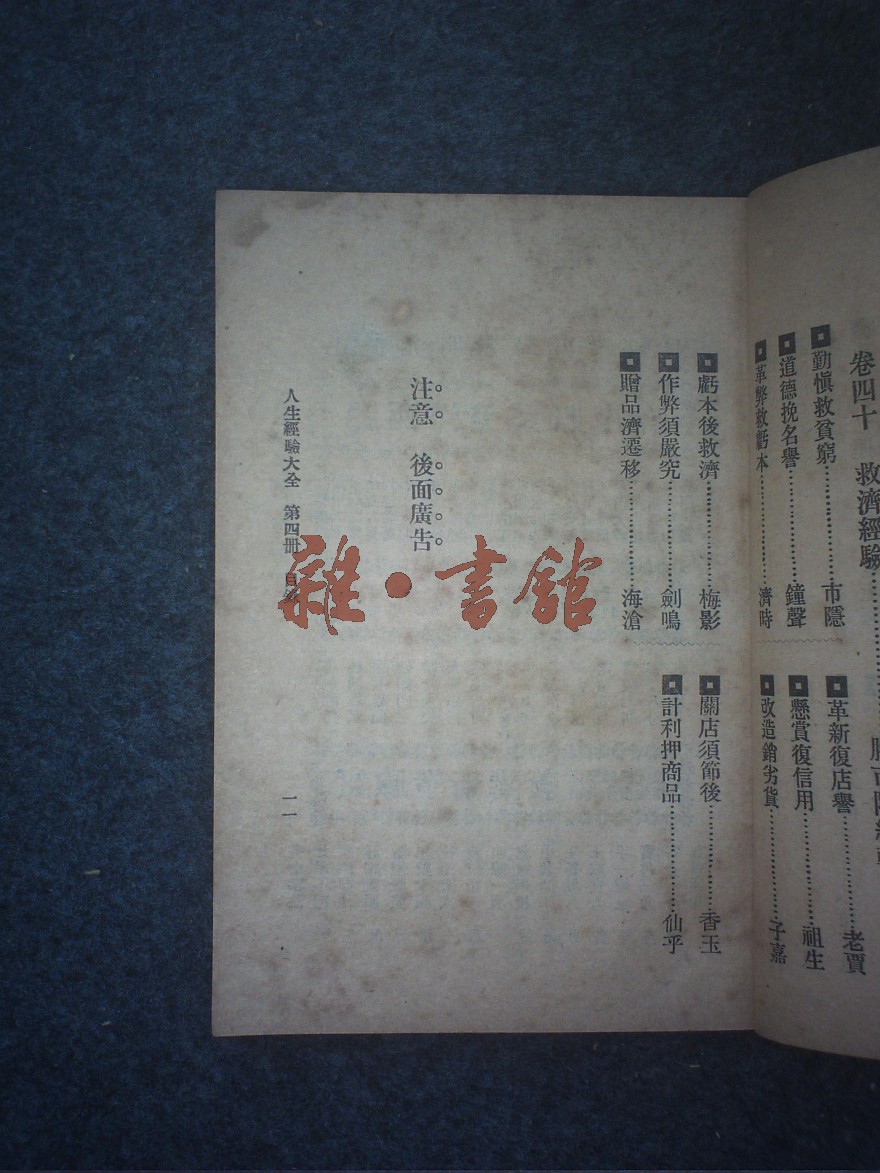 卷四十　救濟經驗
勤愼救貧窮 市隱
革新復店譽 老賈
道德挽名譽 鐘聲
懸賞復信用 祖生
革弊救虧本 濟時
改造銷劣貨 子嘉
虧本後救濟 梅影
關店須節後 香玉
作弊須嚴究 劍鳴
計利押商品 仙乎
贈品濟遷移 海滄
注意　後面廣告
人生經驗大全　第四冊　目錄
一一
雜·書館